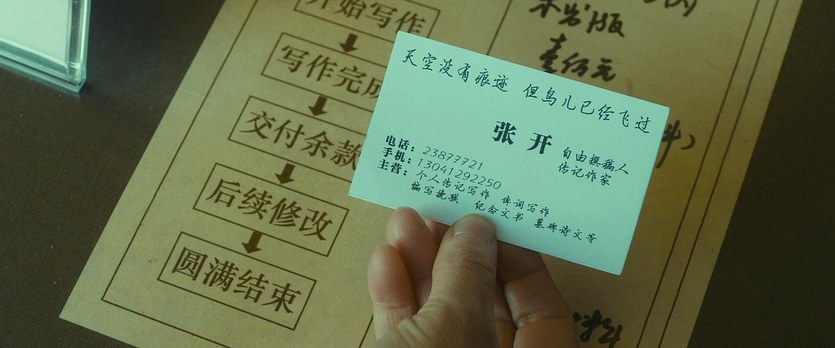 开始写作
写作完成
交付余款
后续修改
圆满结束
壹佰元
天空没有痕迹 但鸟儿已经飞过
张开
自由撰稿人
传记作家
电话：23877721
手机：13041292250
主营：个人传记写作 体词写作
编写挽联 纪念文书 墓碑诗文等